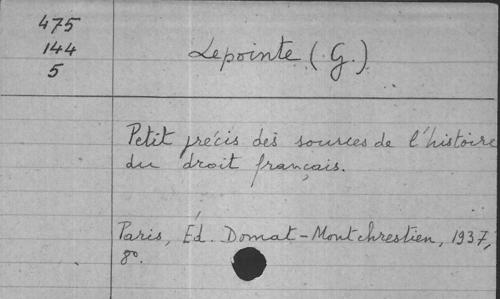 475
144
5
Lepointe (G.)
Petit précis des sources de l'histoire
du droit français.
Paris, Éd. Domat-Montchrestien, 1937,
8º.